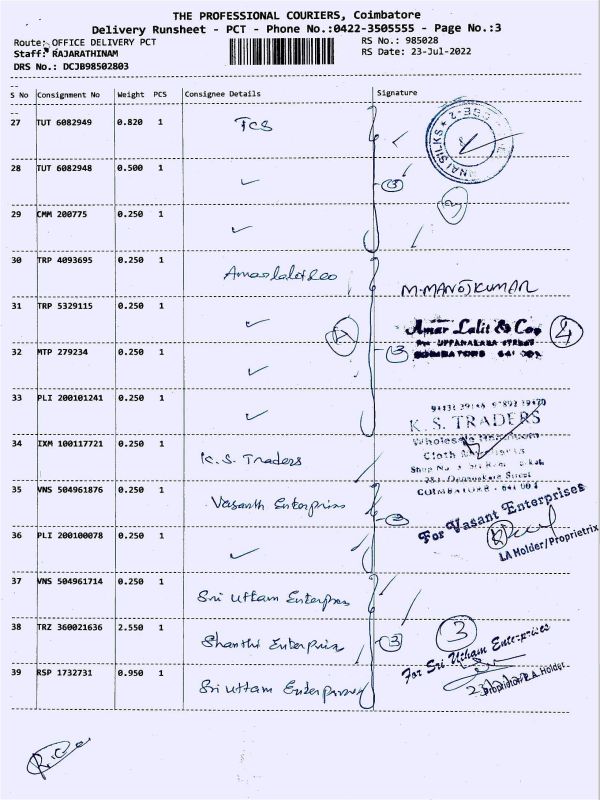 THE PROFESSIONAL COURIERS, Coimbatore
Delivery Runsheet - PCT - Phone No.:0422-3505555 - Page No.:3
Route: OFFICE DELIVERY PCT
RS No.: 985028
Staff: RAJARATHINAM
RS Date: 23-Jul-2022
DRS No.: DCJB98502803
S No Consignment No Weight PCS Consignee Details Signature
27 TUT 6082949 0.820 1 TCS
28 TUT 6082948 0.500 1 ✓ 3
29 CMM 200775 0.250 1 ✓
30 TRP 4093695 0.250 1
M. MANOJKUMAR
31 TRP 5329115 0.250 1 ✓
Amar Lalit & Co 4
32 MTP 279234 0.250 1 ✓ 3
COIMBATORE 641 001
33 PLI 200101241 0.250 1 ✓
K. S. TRADERS
Wholesale
34 IXM 100117721 0.250 1 K.S. Traders
Cloth
Shop No
COIMBATORE - 641 001
35 VNS 504961876 0.250 1 Vasanth Enterprises 3
For Vasant Enterprises
36 PLI 200100078 0.250 1 ✓
P.A Holder/Proprietrix
37 VNS 504961714 0.250 1 Sri Uttam Enterprises
38 TRZ 360021636 2.550 1 Shanthi Enterprises 3 3
For Sri Utham Enterprises
39 RSP 1732731 0.950 1 Sri Uttam Enterprises
Proprietor/P.A. Holder